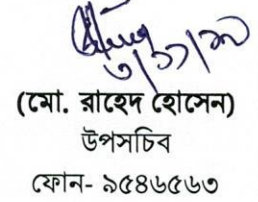 ৩/১১/২০
(মো. রাহেদ হোসেন)
উপসচিব
ফোন- ৯৫৪৬৫৬৩